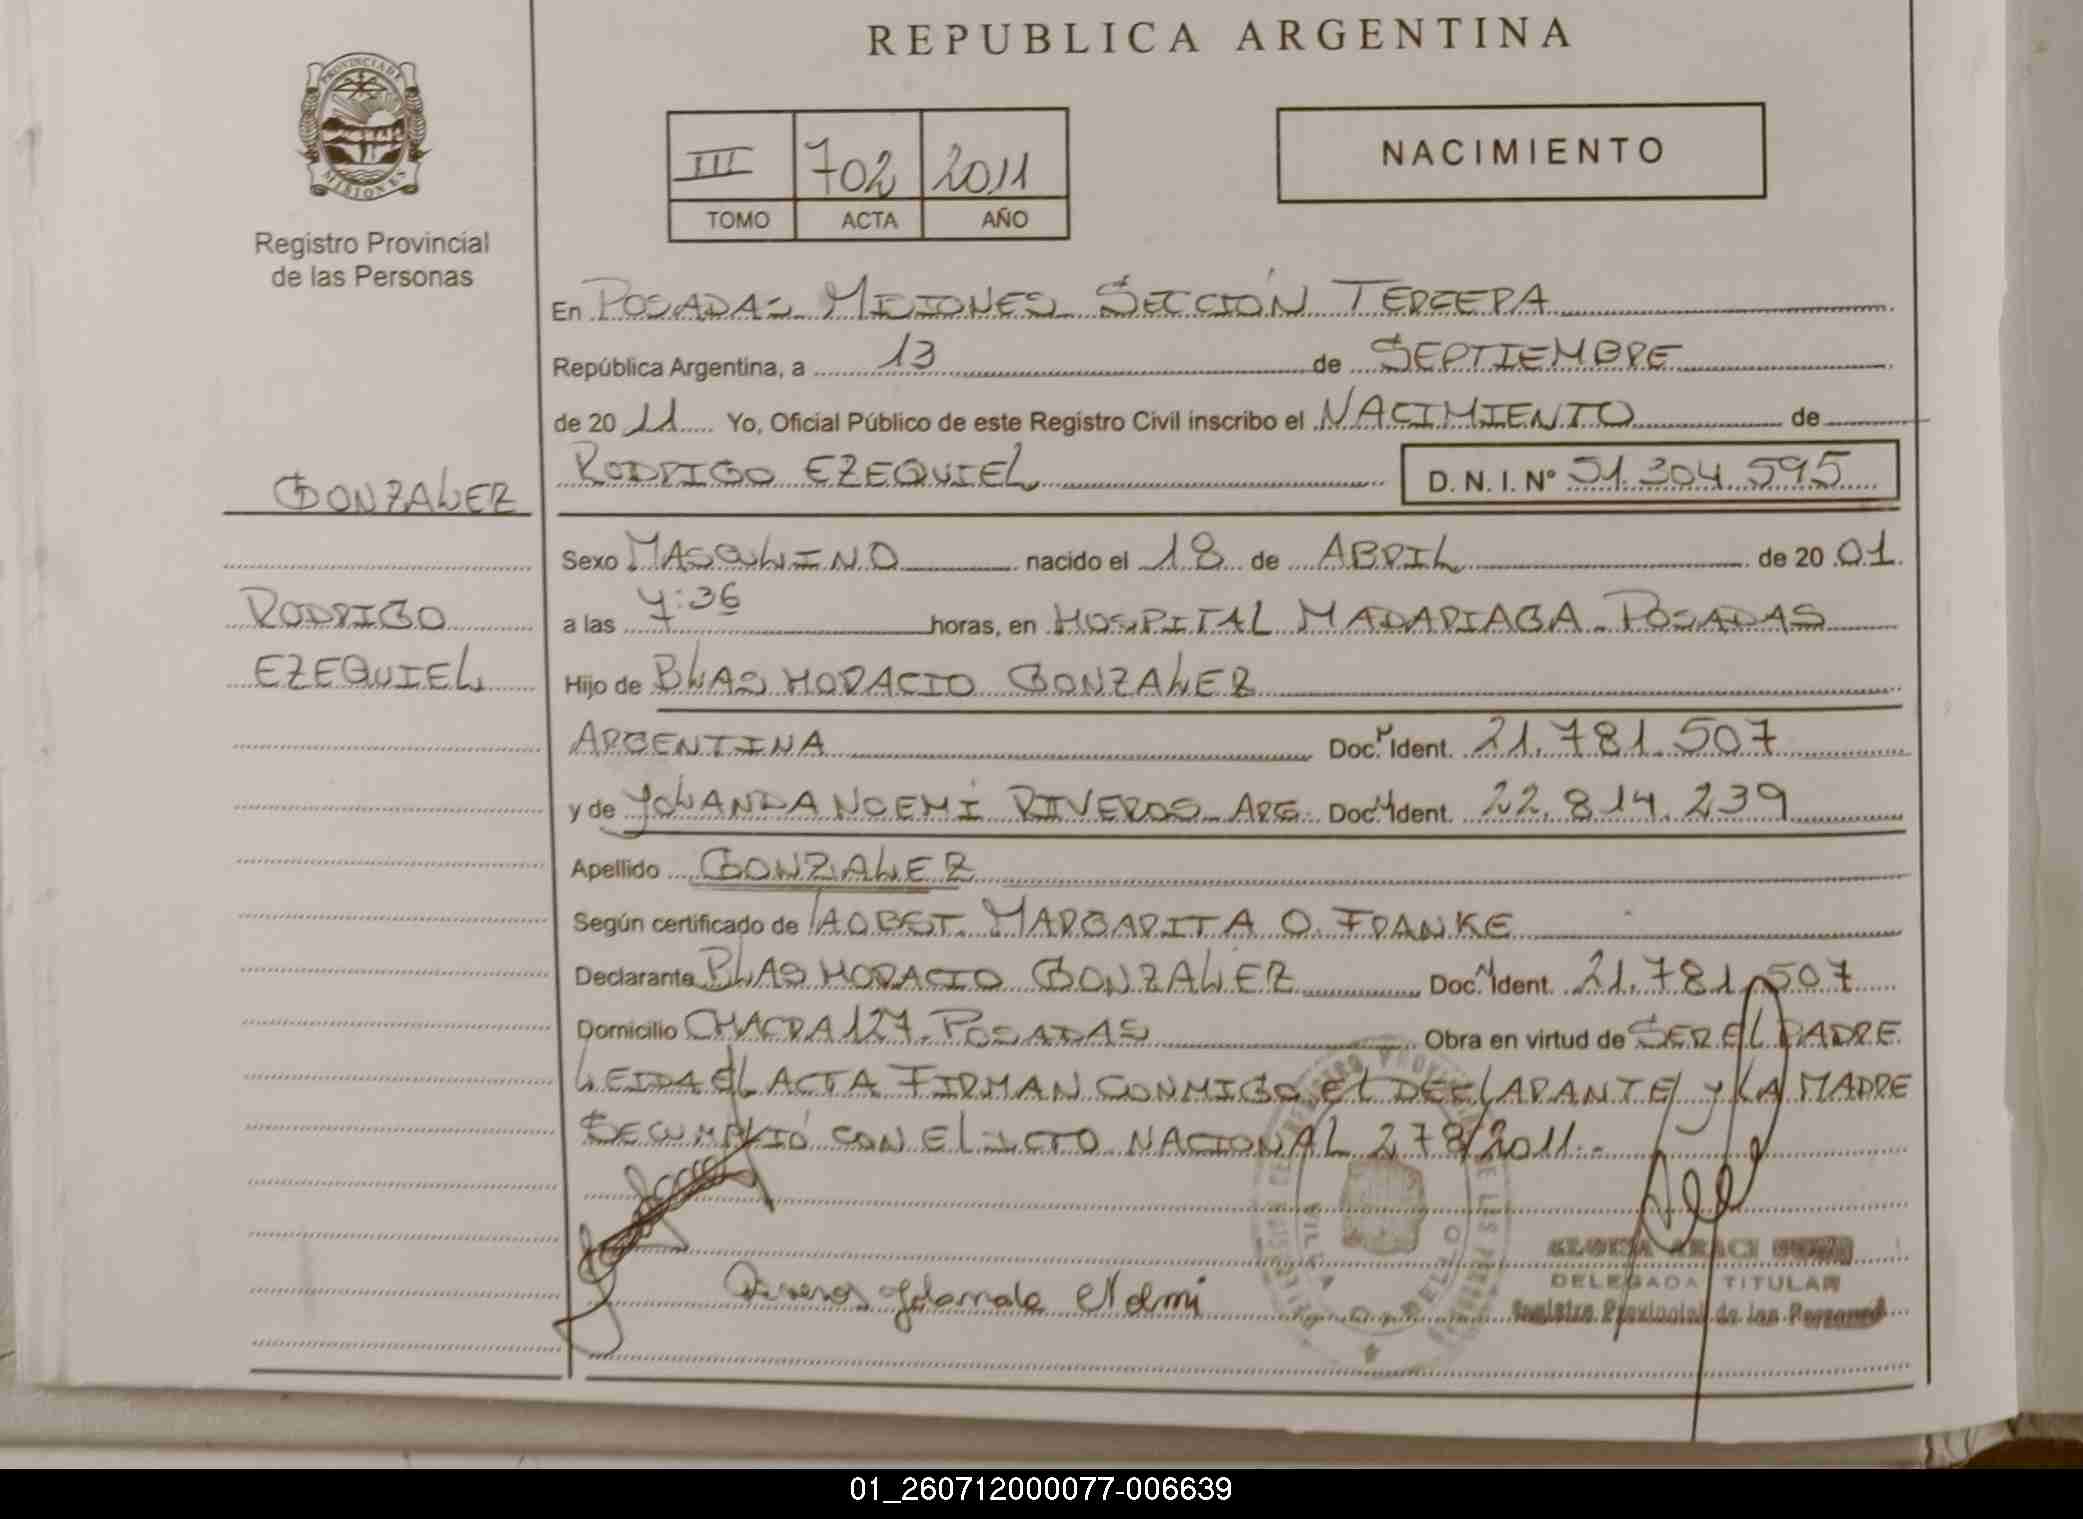 REPUBLICA ARGENTINA
PROVINCIA DE
MISIONES
Registro Provincial
de las Personas
III 702 2011
TOMO ACTA AÑO
NACIMIENTO
En POSADAS MISIONES SECCIÓN TERCERA
República Argentina, a 13 de SEPTIEMBRE
de 20 11 Yo, Oficial Público de este Registro Civil inscribo el NACIMIENTO de
RODRIGO EZEQUIEL D. N. I. Nº 51.304.595
GONZALEZ
RODRIGO
EZEQUIEL
Sexo MASCULINO nacido el 18 de ABRIL de 20 01
a las 7:36 horas, en HOSPITAL MADARIAGA - POSADAS
Hijo de BLAS HORACIO GONZALEZ
ARGENTINA Doc. Ident. 21.781.507
y de YOLANDA NOEMÍ RIVEROS ARG. Doc. Ident. 22.814.239
Apellido GONZALEZ
Según certificado de LA OBST. MARGARITA O. FRANKE
Declarante BLAS HORACIO GONZALEZ Doc. Ident. 21.781.507
Domicilio CHACRA 127 - POSADAS Obra en virtud de SER EL PADRE
LEIDA EL ACTA FIRMAN CONMIGO EL DECLARANTE y LA MADRE
SE CUMPLIÓ CON EL DCTO NACIONAL 278/2011.-
Riveros Yolanda Noemi
DELEGADA TITULAR
Registro Provincial de las Personas
01_260712000077-006639